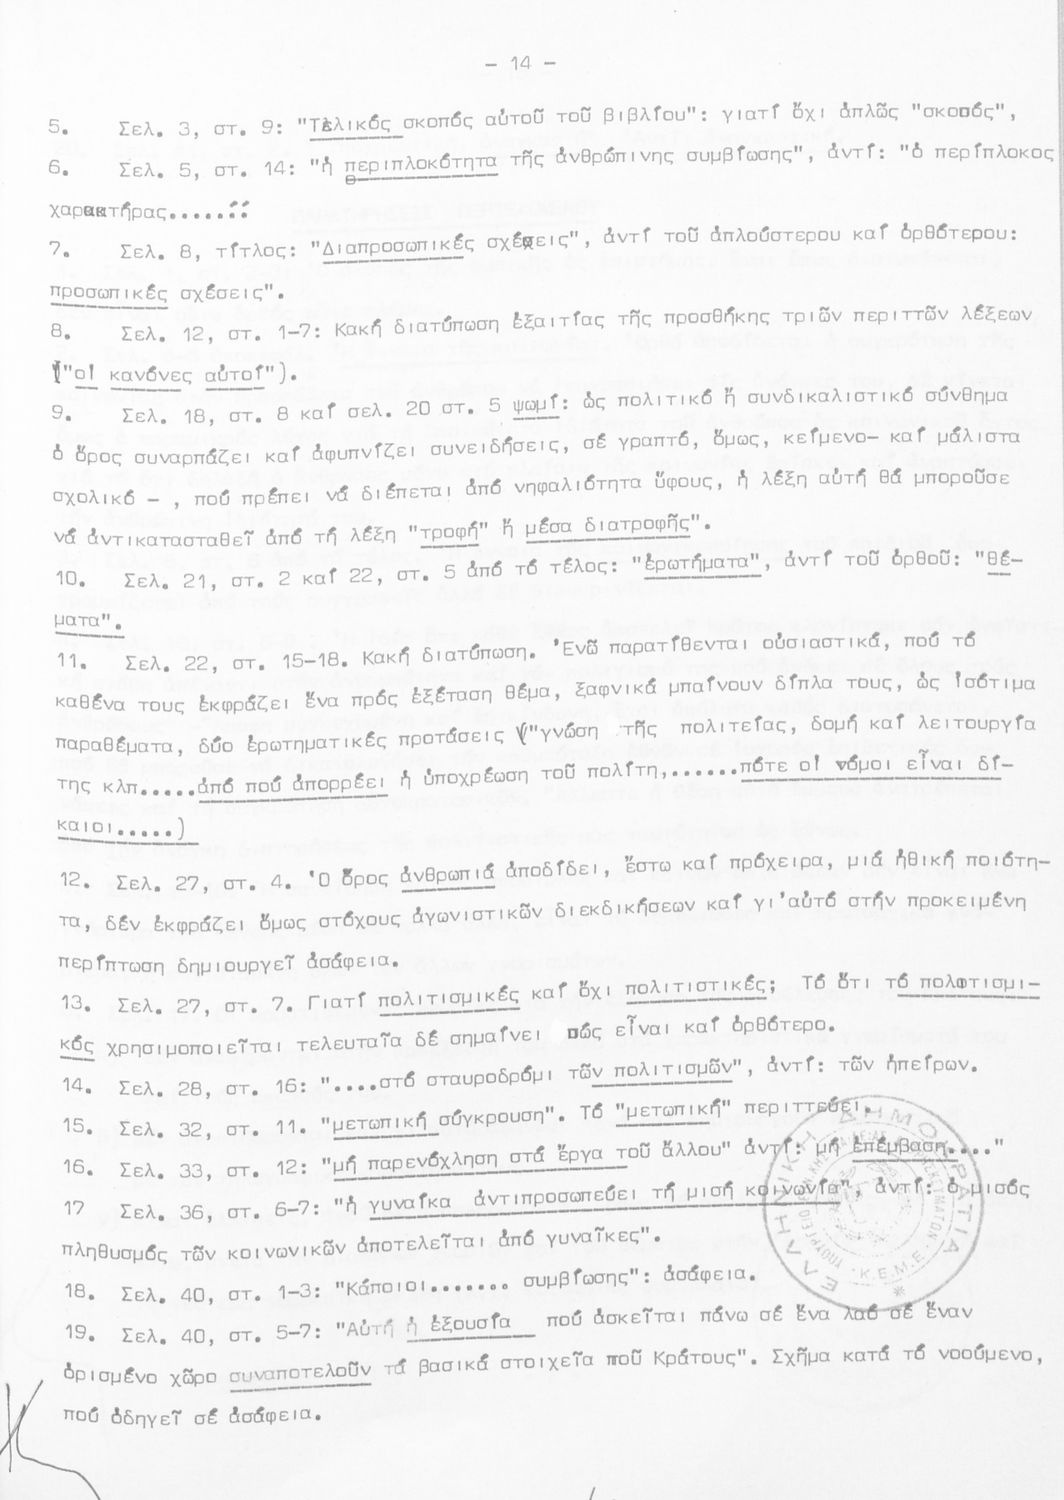 - 14 -
5. Σελ. 3, στ. 9: "Τελικός σκοπός αὐτοῦ τοῦ βιβλίου": γιατί ὄχι ἁπλῶς "σκοπός",
6. Σελ. 5, στ. 14: "ἡ περιπλοκότητα τῆς ἀνθρώπινης συμβίωσης", ἀντί: "ὁ περίπλοκος
χαρακτήρας.......
7. Σελ. 8, τίτλος: "Διαπροσωπικές σχέσεις", ἀντί τοῦ ἁπλούστερου καί ὀρθότερου:
προσωπικές σχέσεις".
8. Σελ. 12, στ. 1-7: Κακή διατύπωση ἐξαιτίας τῆς προσθήκης τριῶν περιττῶν λέξεων
("οἱ κανόνες αὐτοί").
9. Σελ. 18, στ. 8 καί σελ. 20 στ. 5 ψωμί: ὡς πολιτικό ἤ συνδικαλιστικό σύνθημα
ὁ ὅρος συναρπάζει καί ἀφυπνίζει συνειδήσεις, σέ γραπτό, ὅμως, κείμενο- καί μάλιστα
σχολικό - , πού πρέπει νά διέπεται ἀπό νηφαλιότητα ὕφους, ἡ λέξη αὐτή θά μποροῦσε
νά ἀντικατασταθεῖ ἀπό τή λέξη "τροφή" ἤ μέσα διατροφῆς".
10. Σελ. 21, στ. 2 καί 22, στ. 5 ἀπό τό τέλος: "ἐρωτήματα", ἀντί τοῦ ὀρθοῦ: "θέ-
ματα".
11. Σελ. 22, στ. 15-18. Κακή διατύπωση. Ἐνῶ παρατίθενται οὐσιαστικά, πού τό
καθένα τους ἐκφράζει ἕνα πρός ἐξέταση θέμα, ξαφνικά μπαίνουν δίπλα τους, ὡς ἰσότιμα
παραθέματα, δύο ἐρωτηματικές προτάσεις ("γνώση τῆς πολιτείας, δομή καί λειτουργία
της κλπ.....ἀπό πού ἀπορρέει ἡ ὑποχρέωση τοῦ πολίτη,......πότε οἱ νόμοι εἶναι δί-
καιοι.....)
12. Σελ. 27, στ. 4. Ὁ ὅρος ἀνθρωπιά ἀποδίδει, ἔστω καί πρόχειρα, μιά ἠθική ποιότη-
τα, δέν ἐκφράζει ὅμως στόχους ἀγωνιστικῶν διεκδικήσεων καί γι'αὐτό στήν προκειμένη
περίπτωση δημιουργεῖ ἀσάφεια.
13. Σελ. 27, στ. 7. Γιατί πολιτισμικές καί ὄχι πολιτιστικές; Τό ὅτι τό πολιτισμι-
κός χρησιμοποιεῖται τελευταῖα δέ σημαίνει πώς εἶναι καί ὀρθότερο.
14. Σελ. 28, στ. 16: "....στό σταυροδρόμι τῶν πολιτισμῶν", ἀντί: τῶν ἠπείρων.
15. Σελ. 32, στ. 11. "μετωπική σύγκρουση". Τό "μετωπική" περιττεύει.
16. Σελ. 33, στ. 12: "μή παρενόχληση στά ἔργα τοῦ ἄλλου" ἀντί: μή ἐπέμβαση...."
17 Σελ. 36, στ. 6-7: "ἡ γυναίκα ἀντιπροσωπεύει τή μισή κοινωνία", ἀντί: ὁ μισός
πληθυσμός τῶν κοινωνικῶν ἀποτελεῖται ἀπό γυναῖκες".
18. Σελ. 40, στ. 1-3: "Κάποιοι....... συμβίωσης": ἀσάφεια.
19. Σελ. 40, στ. 5-7: "Αὐτή ἡ ἐξουσία πού ἀσκεῖται πάνω σέ ἕνα λαό σέ ἕναν
ὁρισμένο χῶρο συναποτελοῦν τά βασικά στοιχεῖα ποῦ Κράτους". Σχῆμα κατά τό νοούμενο,
πού ὁδηγεῖ σέ ἀσάφεια.
ΕΛΛΗΝΙΚΗ ΔΗΜΟΚΡΑΤΙΑ
Κ.Ε.Μ.Ε.